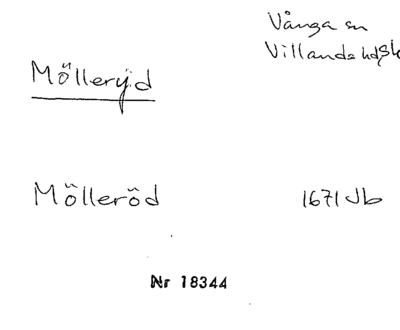 Vånga sn
Villands hd Sk
Mölleryd
Mölleröd 1671 Jb
Nr 18344